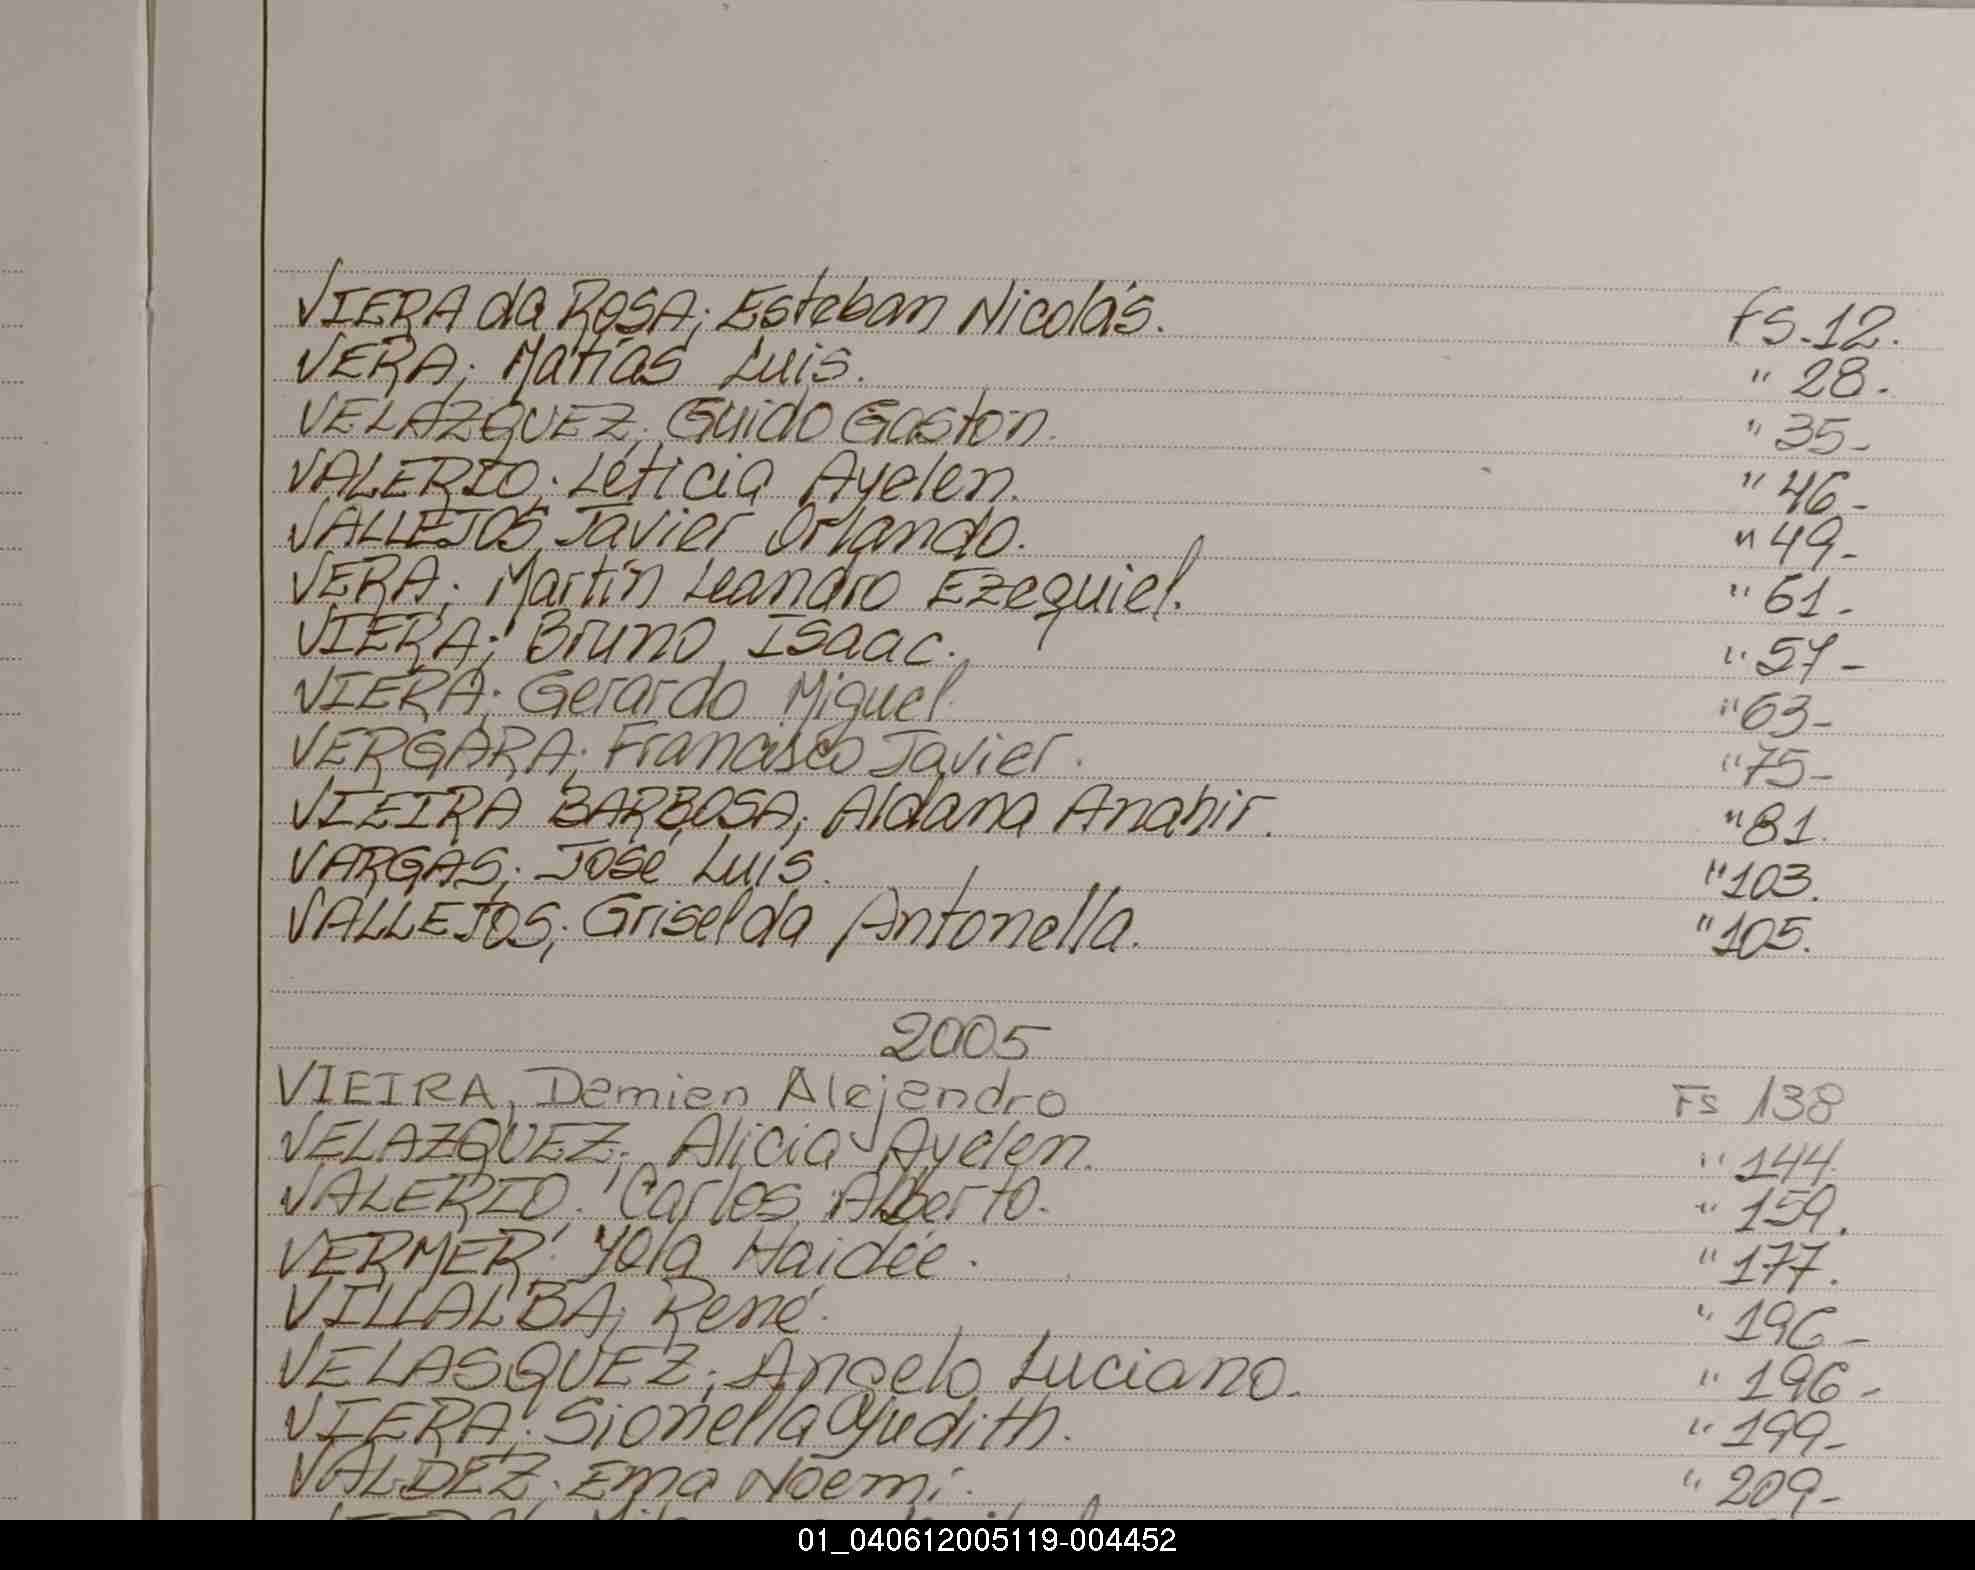 VIERA da ROSA; Esteban Nicolás. Fs. 12.
VERA; Matías Luis. " 28.
VELAZQUEZ; Guido Gastón. " 35-
VALERIO; Leticia Ayelen. " 46-
VALLEJOS, Javier Orlando. " 49-
VERA; Martín Leandro Ezequiel. " 61-
VIERA; Bruno Isaac. " 57-
VIERA; Gerardo Miguel " 63-
VERGARA; Francisco Javier. " 75-
VIEIRA BARBOSA; Aldana Anahir. " 81.
VARGAS; José Luis. " 103.
VALLEJOS; Griselda Antonella. " 105.
2005
VIEIRA, Demian Alejandro Fs 138
VELAZQUEZ; Alicia Ayelen. " 144
VALERIO; Carlos Alberto. " 159.
VERMER; Yola Haidée. " 177.
VILLALBA; René. " 196-
VELASQUEZ; Angelo Luciano. " 196-
VIERA; Sionella Yudith. " 199-
VALDEZ; Ema Noemí. " 209-
01_040612005119-004452